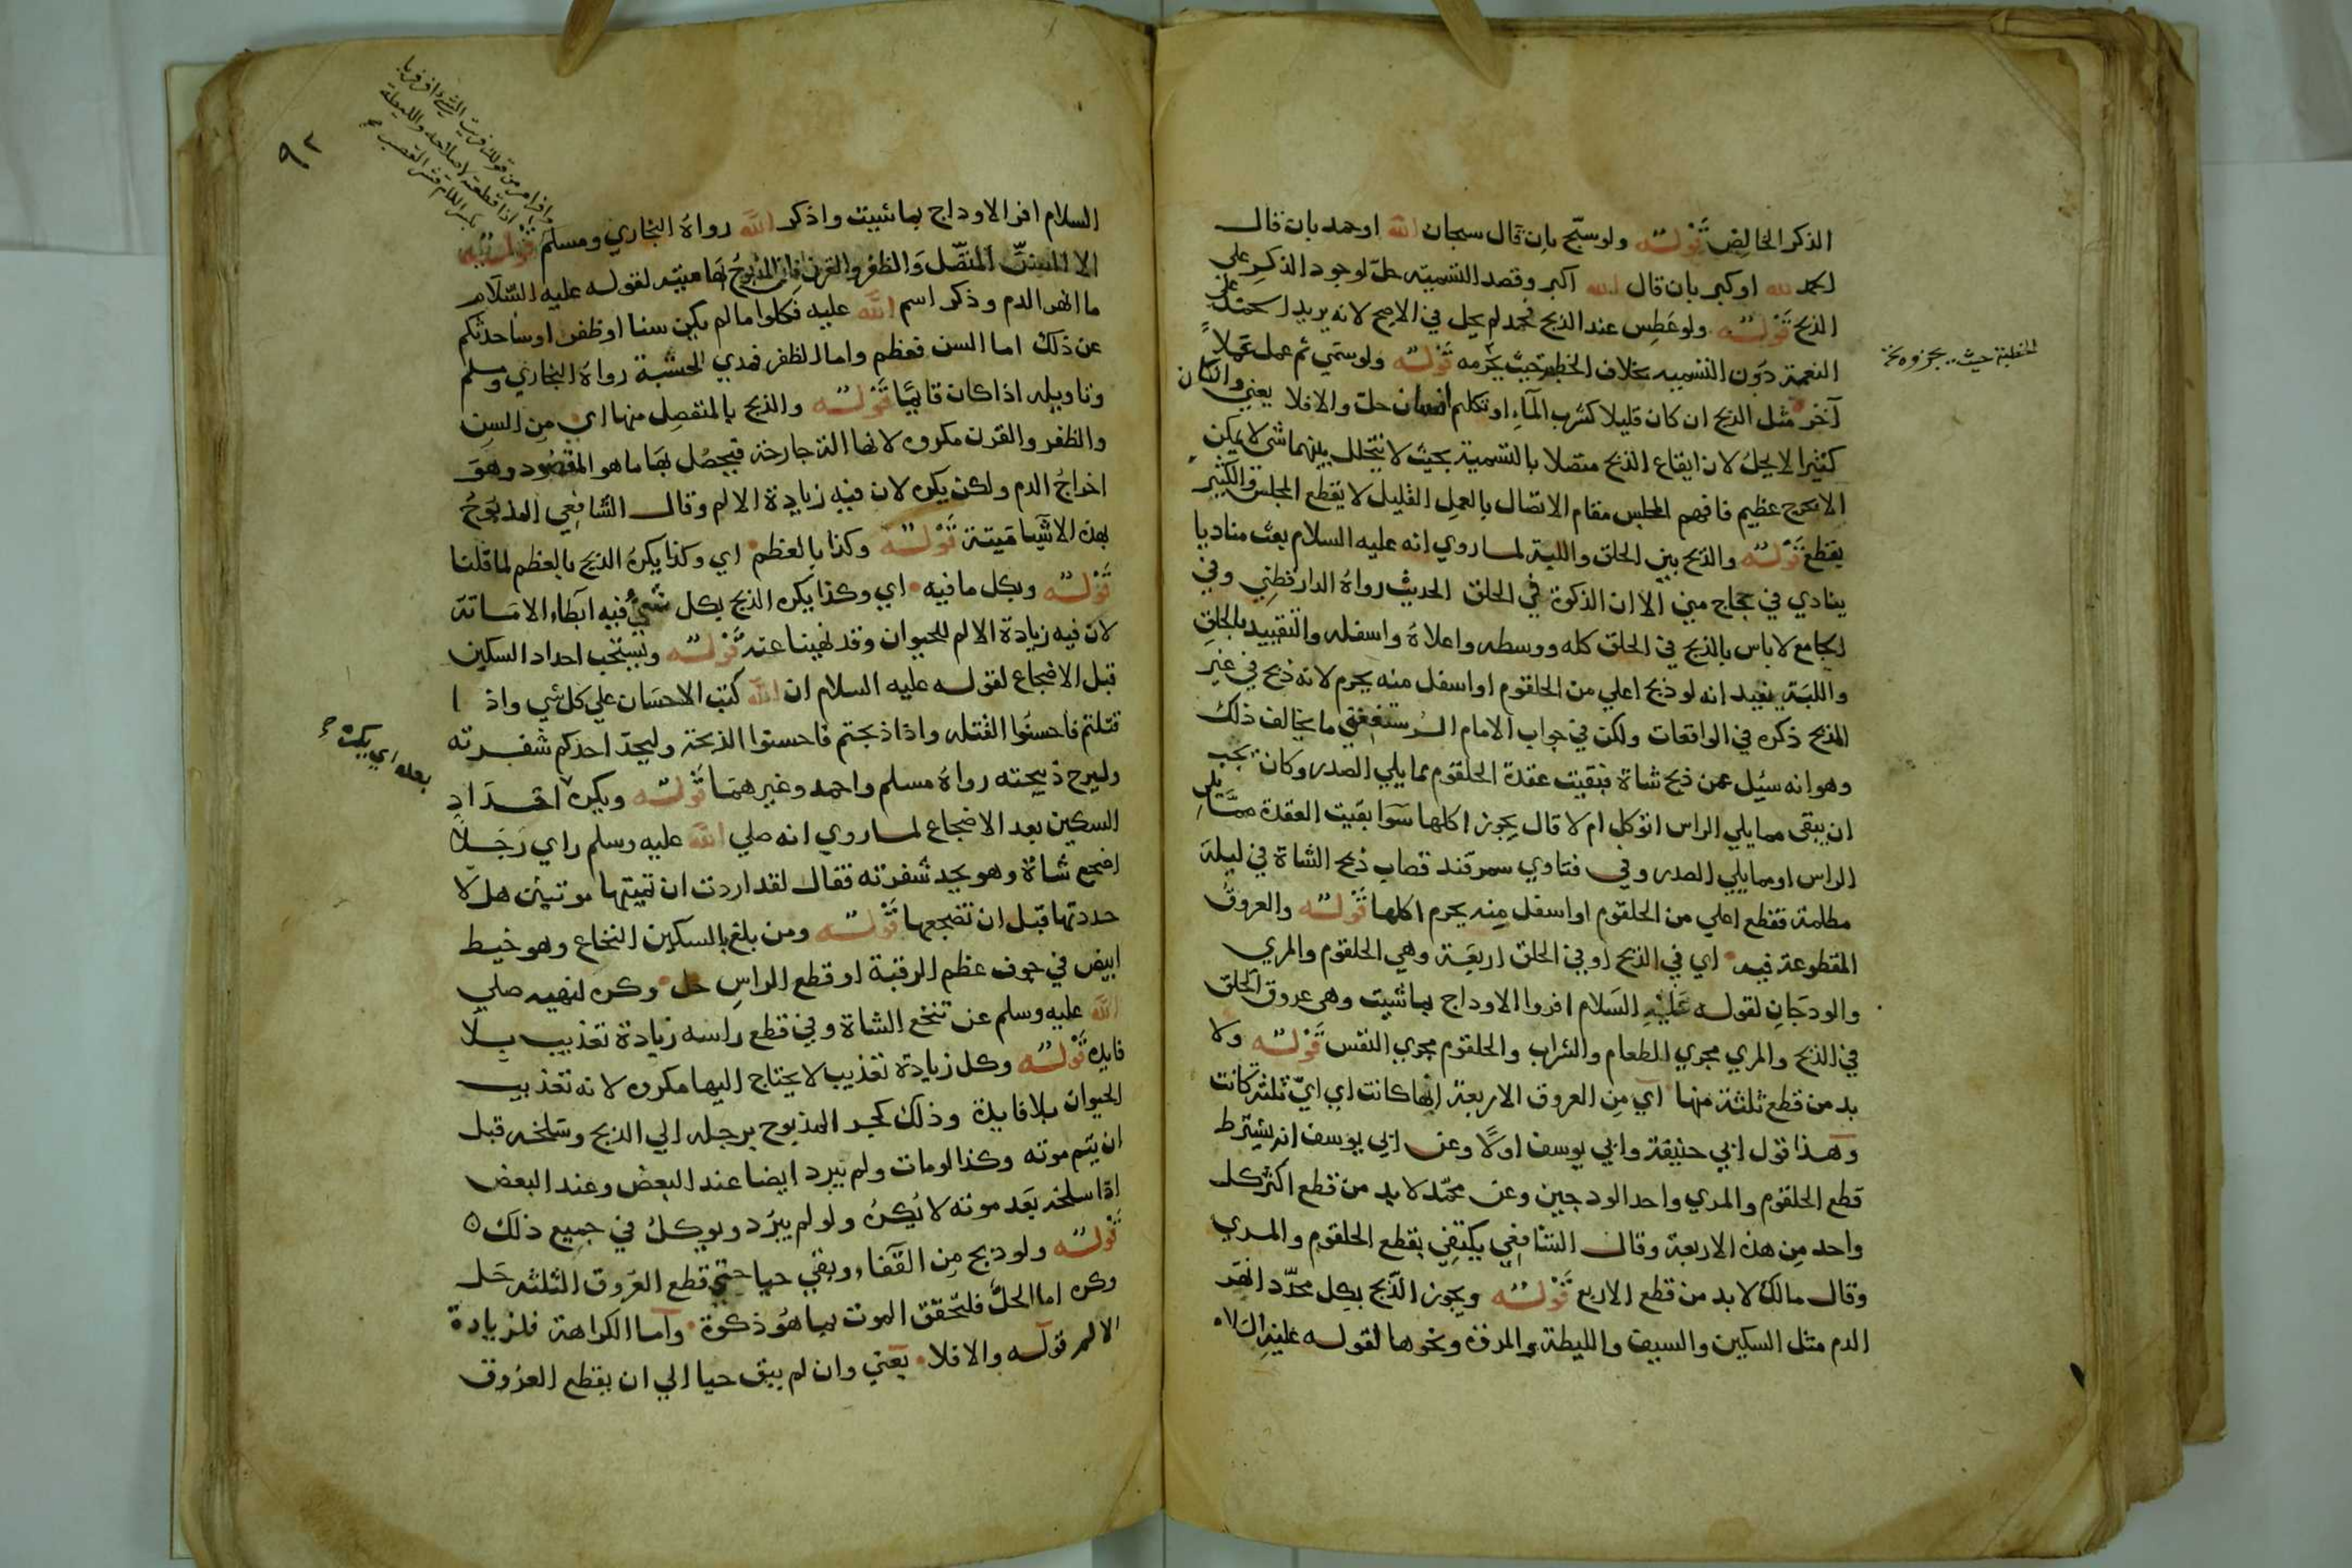 الذكر الخالص قوله ولو سبّح بان قال سبحان الله او حمد بان قال
الحمد لله او كبر بان قال الله اكبر وقصد التسميه حل لوجود الذكر علي
الذبح قوله ولو عطس عند الذبح فحمد لم يحل في الاصح لانه يريد الحمد علي
النعمة دون التسميه بخلاف الخطبة حيث يجزمه قوله ولو سمي ثم عمل عملاً
آخر مثل الذبح ان كان قليلا كشرب الماء او تكلم انسان حل والا فلا يعني وان كان
كثيرا لا يحل لان ايقاع الذبح متصلا بالتسمية بحيث لا يتخلل بينهما شي لا يمكن
الا بحرج عظيم فاقيم المجلس مقام الاتصال بالعمل القليل لا يقطع المجلس والكثير
يقطع قوله والذبح بين الحلق واللبة لما روي انه عليه السلام بعث مناديا
ينادي في فجاج مني الا ان الذكوة في الحلق الحديث رواه الدارقطني وفي
الجامع لا باس بالذبح في الحلق كله ووسطه واعلاه واسفله والتقييد بالحلق
واللبة يفيد انه لو ذبح اعلي من الحلقوم او اسفل منه يحرم لانه ذبح في غير
المذبح ذكره في الواقعات ولكن في جواب الامام الرستغفني ما يخالف ذلك
وهو انه سئل عمن ذبح شاة فبقيت عقدة الحلقوم مما يلي الصدر وكان يجب
ان يبقي مما يلي الراس اتوكل ام لا قال يجوز اكلها سوا بقيت العقدة مما يلي
الراس او مما يلي الصدر وفي فتاوي سمرقند قصاب ذبح الشاة في ليلة
مظلمة فقطع اعلي من الحلقوم او اسفل منه يحرم اكلها قوله والعروق
المقطوعة فيه اي في الذبح او في الحلق اربعة وهي الحلقوم والمري
والودجان لقوله عليه السلام افروا الاوداج بما شيت وهي عروق الحلق
في الذبح والمري مجري الطعام والشراب والحلقوم مجري النفس قوله ولا
بد من قطع ثلثة منها اي من العروق الاربعة ايها كانت اي اي ثلثة كانت
وهذا قول ابي حنيفة وابي يوسف اولاً وعن ابي يوسف انه يشترط
قطع الحلقوم والمري واحد الودجين وعن محمد لا بد من قطع اكثر كل
واحد من هذه الاربعة وقال الشافعي يكتفي بقطع الحلقوم والمري
وقال مالك لا بد من قطع الاربع قوله ويجوز الذبح بكل محدد انهر
الدم مثل السكين والسيف والليطة والمروة ونحوها لقوله عليه
الخطبة حيث يجزوه
٩٢
وافر امر من قولك فريت الشي وافر فريا
اذا قطعته لاصلاحه والليطة
بكسر اللام قشر القصب
السلام افر الاوداج بما شيت واذكر الله رواه البخاري ومسلم قوله
الا السن المتصل والظفر والقرن فان المذبوح بها ميته لقوله عليه السلام
ما انهر الدم وذكر اسم الله عليه فكلوا ما لم يكن سنا او ظفرا وساحدثكم
عن ذلك اما السن فعظم واما الظفر فمدي الحبشة رواه البخاري ومسلم
وتاويله اذا كان قائما قوله والذبح بالمنفصل منها اي من السن
والظفر والقرن مكروه لانها الة جارحة فيحصل بها ما هو المقصود وهو
اخراج الدم ولكن يكره لان فيه زيادة الالم وقال الشافعي المذبوح
بهذه الاشيا ميتة قوله وكذا بالعظم اي وكذا يكره الذبح بالعظم لما قلنا
قوله وبكل ما فيه اي وكذا يكره الذبح بكل شي فيه ابطاء الاماتة
لان فيه زيادة الالم للحيوان وقد نهينا عنه قوله ويستحب احداد السكين
قبل الاضجاع لقوله عليه السلام ان الله كتب الاحسان علي كل شي واذا
قتلتم فاحسنوا القتلة واذا ذبحتم فاحسنوا الذبحة وليحد احدكم شفرته
وليرح ذبيحته رواه مسلم واحمد وغيرهما قوله ويكره احداد
السكين بعد الاضجاع لما روي انه صلي الله عليه وسلم راي رجلا
اضجع شاة وهو يحد شفرته فقال لقد اردت ان تميتها موتتين هلا
حددتها قبل ان تضجعها قوله ومن بلغ بالسكين النخاع وهو خيط
ابيض في جوف عظم الرقبة او قطع الراس حل وكره لنهيه صلي
الله عليه وسلم عن تنخع الشاة وفي قطع راسه زيادة تعذيب بلا
فايده قوله وكل زيادة تعذيب لا يحتاج اليها مكروه لانه تعذيب
الحيوان بلا فايدة وذلك كجر المذبوح برجله الي الذبح وسلخه قبل
ان يتم موته وكذا لو مات ولم يبرد ايضا عند البعض وعند البعض
اذا سلخه بعد موته لا يكره ولو لم يبرد ويوكل في جميع ذلك
قوله ولو ذبح من القفاء وبقي حيا حتي قطع العروق الثلثه حل
وكره اما الحل فلتحقق الموت بما هو ذكوة واما الكراهة فلزيادة
الالم قوله والا فلا يعني وان لم يبق حيا الي ان يقطع العروق